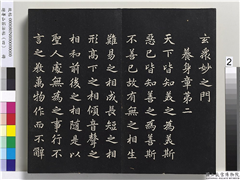 玄衆妙之門
養身章第二
天下皆知美之為美斯
惡已皆知善之為善斯
不善已故有無之相生
難易之相成長短之相
形高下之相傾音聲之
相和前後之相隨是以
聖人處無為之事行不
言之教萬物作而不辭
2